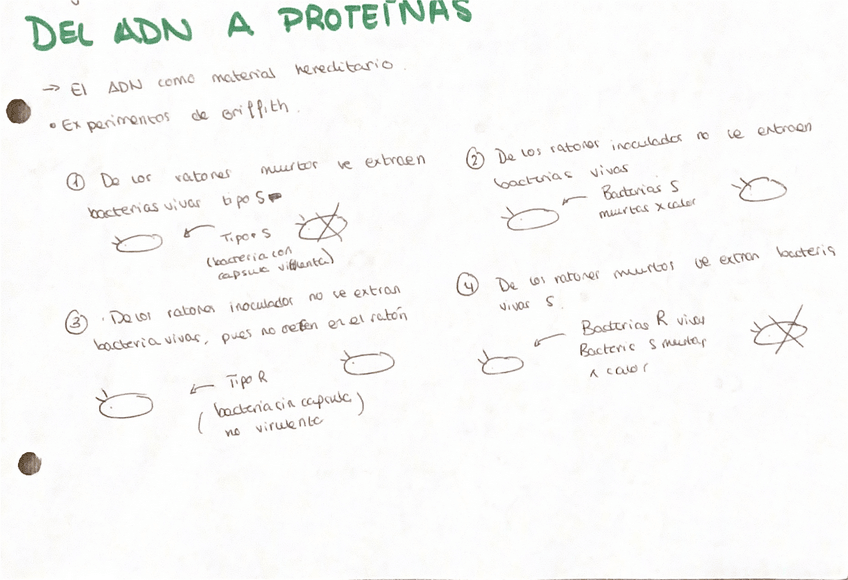 DEL ADN A PROTEÍNAS
→ El ADN como material hereditario.
• Experimentos de Griffith.
① De los ratones muertos se extraen
bacterias vivas tipo S
Tipo S
(bacteria con
capsula virulenta)
② De los ratones inoculados no se extraen
bacterias vivas
Bacterias S
muertas x calor
③ · De los ratones inoculador no se extran
bacteria vivas, pues no en el ratón
Tipo R
(bacteria sin capsula)
no virulenta
④ De los ratones muertos se extraen bacterias
vivas S.
Bacterias R vivas
Bacteria S muertas
x calor